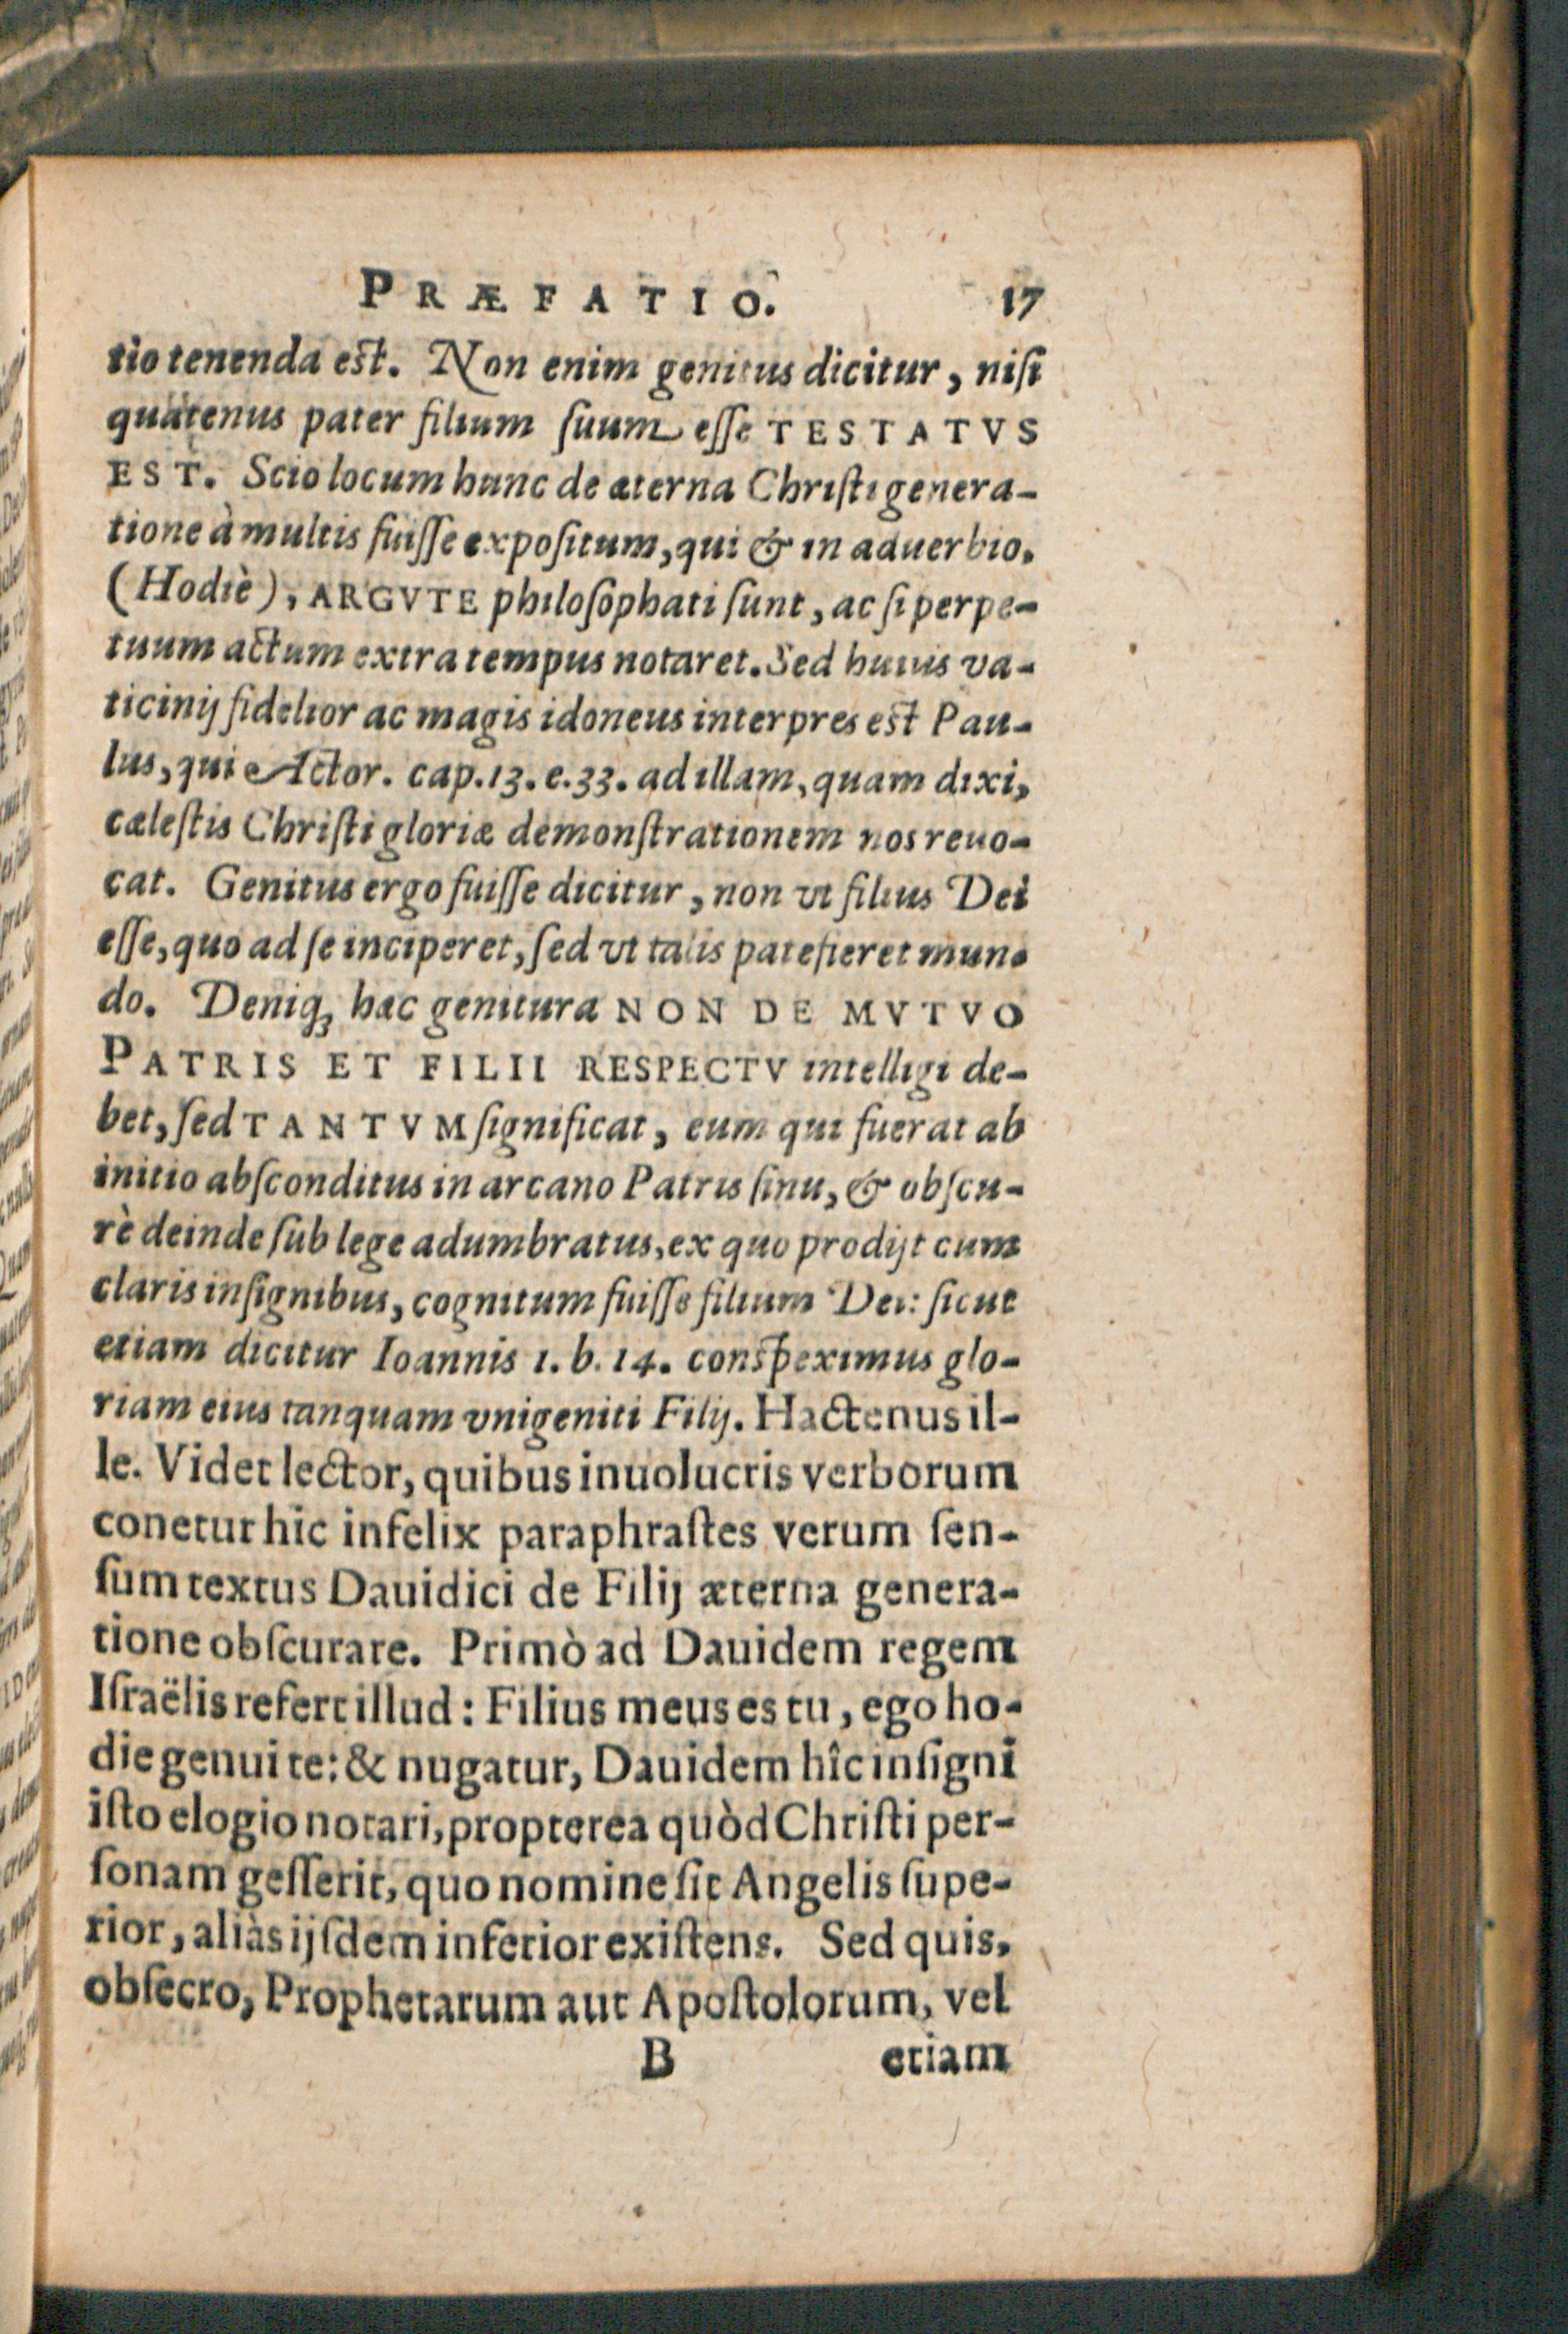 PRÆFATIO. 17
tio tenenda est. Non enim genitus dicitur, niſi
quatenus pater filium ſuum eſſe TESTATVS
EST. Scio locum hunc de æterna Chriſti genera-
tione à multis fuiſſe expoſitum, qui & in aduerbio,
(Hodiè), ARGVTE philoſophati ſunt, ac ſi perpe-
tuum actum extra tempus notaret. Sed huius va-
ticinij fidelior ac magis idoneus interpres est Pau-
lus, qui Actor. cap. 13. e. 33. ad illam, quam dixi,
cæleſtis Chriſti gloriæ demonſtrationem nos reuo-
cat. Genitus ergo fuiſſe dicitur, non vt filius Dei
eſſe, quo ad ſe inciperet, ſed vt talis patefieret mun-
do. Deniq; hæc genitura NON DE MVTVO
PATRIS ET FILII RESPECTV intelligi de-
bet, ſed TANTVM ſignificat, eum qui fuerat ab
initio abſconditus in arcano Patris ſinu, & obſcu-
rè deinde ſub lege adumbratus, ex quo prodijt cum
claris inſignibus, cognitum fuiſſe filium Dei: ſicut
etiam dicitur Ioannis 1. b. 14. conspeximus glo-
riam eius tanquam vnigeniti Filij. Hactenus il-
le. Videt lector, quibus inuolucris verborum
conetur hic infelix paraphraſtes verum ſen-
ſum textus Dauidici de Filij æterna genera-
tione obſcurare. Primò ad Dauidem regem
Iſraëlis refert illud: Filius meus es tu, ego ho-
die genui te: & nugatur, Dauidem hîc inſigni
iſto elogio notari, propterea quòd Chriſti per-
ſonam geſſerit, quo nomine ſit Angelis ſupe-
rior, aliàs ijſdem inferior exiſtens. Sed quis,
obſecro, Prophetarum aut Apoſtolorum, vel
B etiam